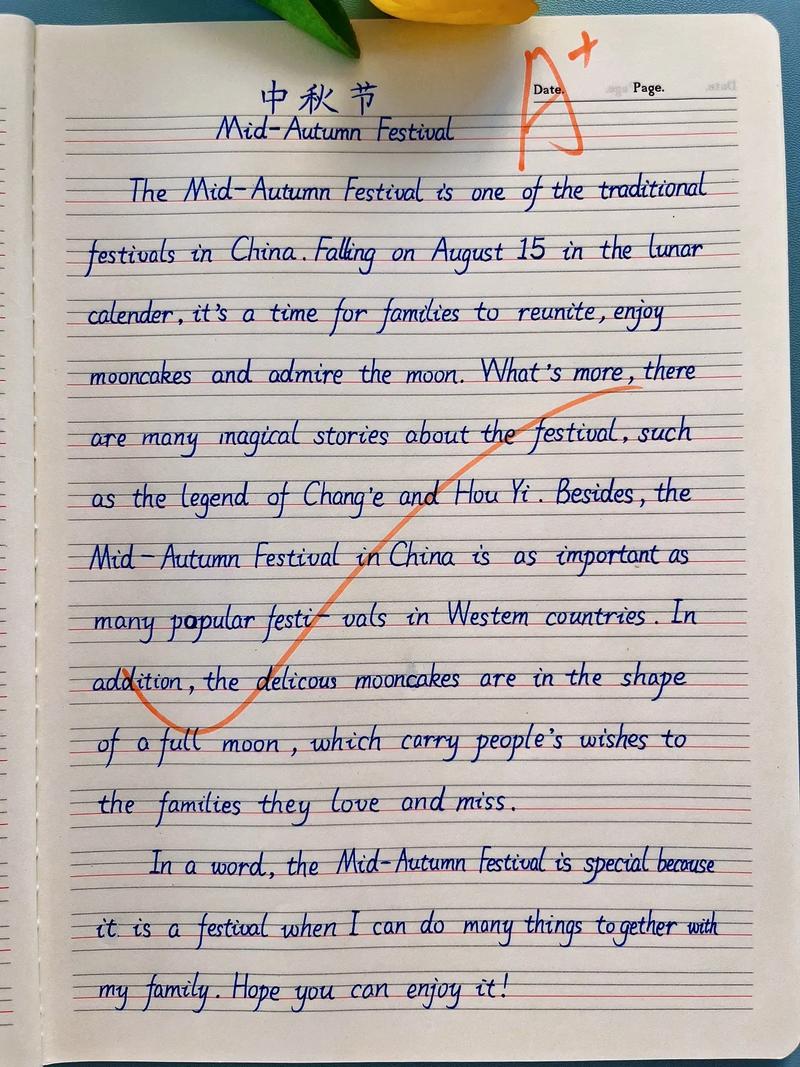 A+
Date. Page.
中秋节
Mid-Autumn Festival
The Mid-Autumn Festival is one of the traditional
festivals in China. Falling on August 15 in the lunar
calender, it's a time for families to reunite, enjoy
mooncakes and admire the moon. What's more, there
are many magical stories about the festival, such
as the legend of Chang'e and Hou Yi. Besides, the
Mid-Autumn Festival in China is as important as
many popular festi-vals in Westem countries. In
addition, the delicous mooncakes are in the shape
of a full moon, which carry people's wishes to
the families they love and miss.
In a word, the Mid-Autumn Festival is special because
it is a festival when I can do many things together with
my family. Hope you can enjoy it!